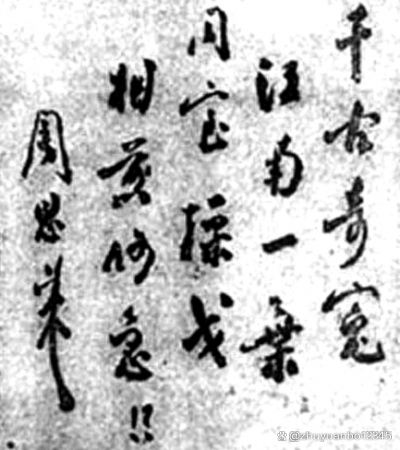 千古奇冤
江南一葉
同室操戈
相煎何急!!
周恩来
@zhuyuanbo12345